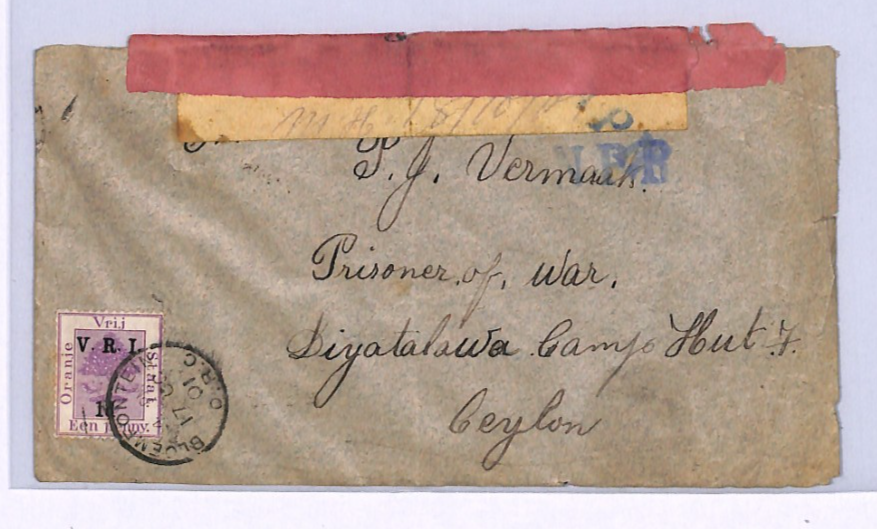 18/10/01
P. J. Vermaak.
Prisoner. of. War.
Diyatalawa Camp Hut 7.
Ceylon
Vrij
Oranje
V. R. I.
Staat
1
Een penny.
BLOEMFONTEIN
O.R.C.
17
01